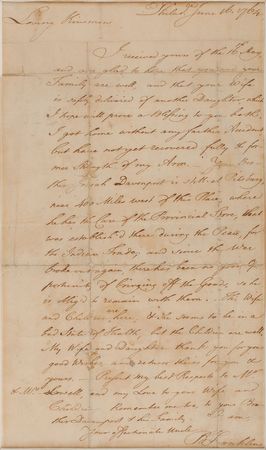 Philad.ª June 16. 1764
Loving Kinsman
I received yours of the 10th May,
and am glad to hear that you and your
Family are well, and that your Wife
is safely delivered of another Daughter, which
I hope will prove a Blessing to you both.
I got home without any farther Accident
but have not yet recovered fully the for-
mer Strength of my Arm. Your Bro-
ther Josiah Davenport is still at Pitsburg
near 400 Miles west of this Place, where
he has the Care of the Provincial Store, that
was establish'd there during the Peace, for
the Indian Trade; and since the War
broke out again there has been no good Op-
portunity of bringing off the Goods, so he
is oblig'd to remain with them. His Wife
and Children are here, & she seems to be in a
bad State of Health, but the Children are well.
My Wife and Daughter thank you for your
good Wishes, and return theirs for you &
yours. Present my best Respects to Mr
& Mrs Lowell, and my Love to your Wife and
Children. Remember me to your Bro-
ther Davenport & his Family. I am
Your affectionate Uncle
B Franklin